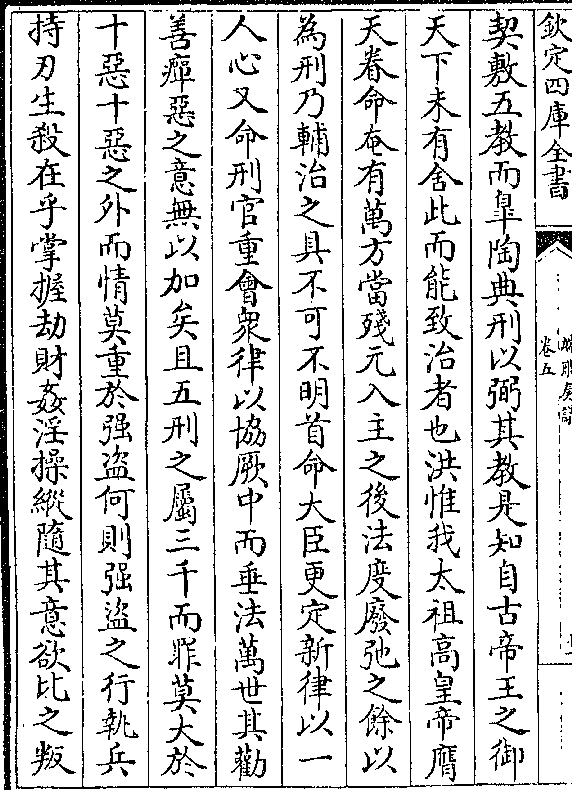 欽定四庫全書
卷五
契敷五教而臯陶典刑以弼其教是知自古帝王之御
天下未有舍此而能致治者也洪惟我太祖高皇帝膺
天眷命奄有萬方當殘元入主之後法度廢弛之餘以
為刑乃輔治之具不可不明首命大臣更定新律以一
人心又命刑官重會衆律以協厥中而垂法萬世其勸
善癉惡之意無以加矣且五刑之屬三千而罪莫大於
十惡十惡之外而情莫重於强盗何則强盗之行執兵
持刃生殺在乎掌握劫財姦淫操縱隨其意欲比之叛